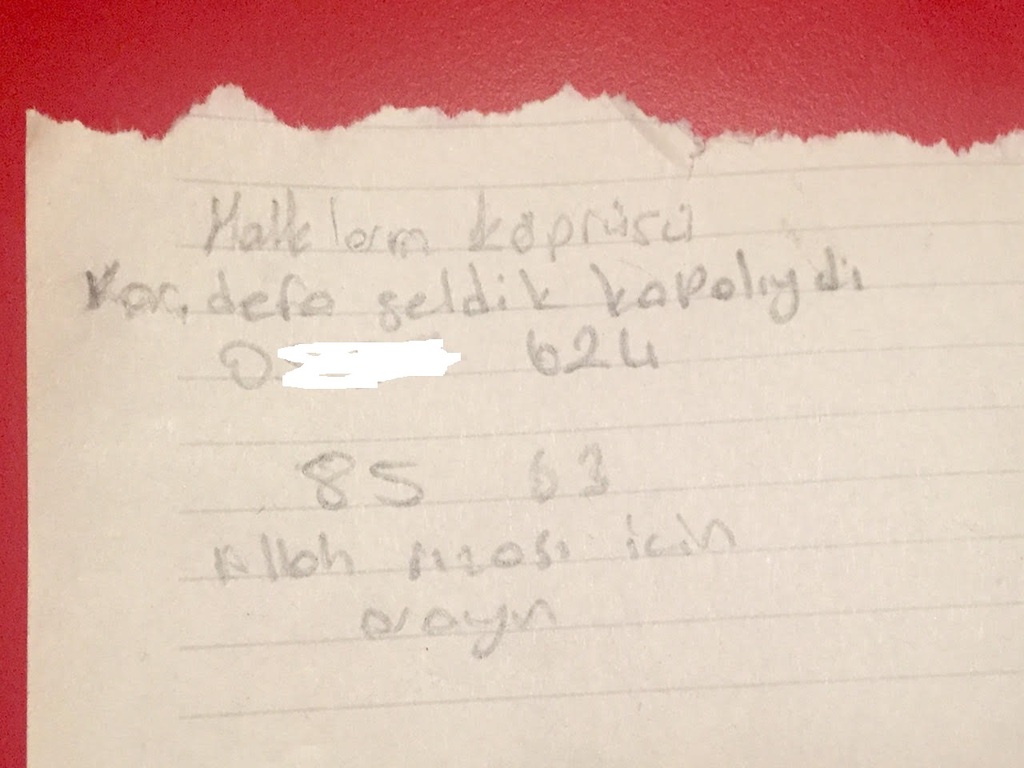 Halkların köprüsü
Kaç defa geldik kapalıydı
0 624
85 63
Allah rızası için
arayın